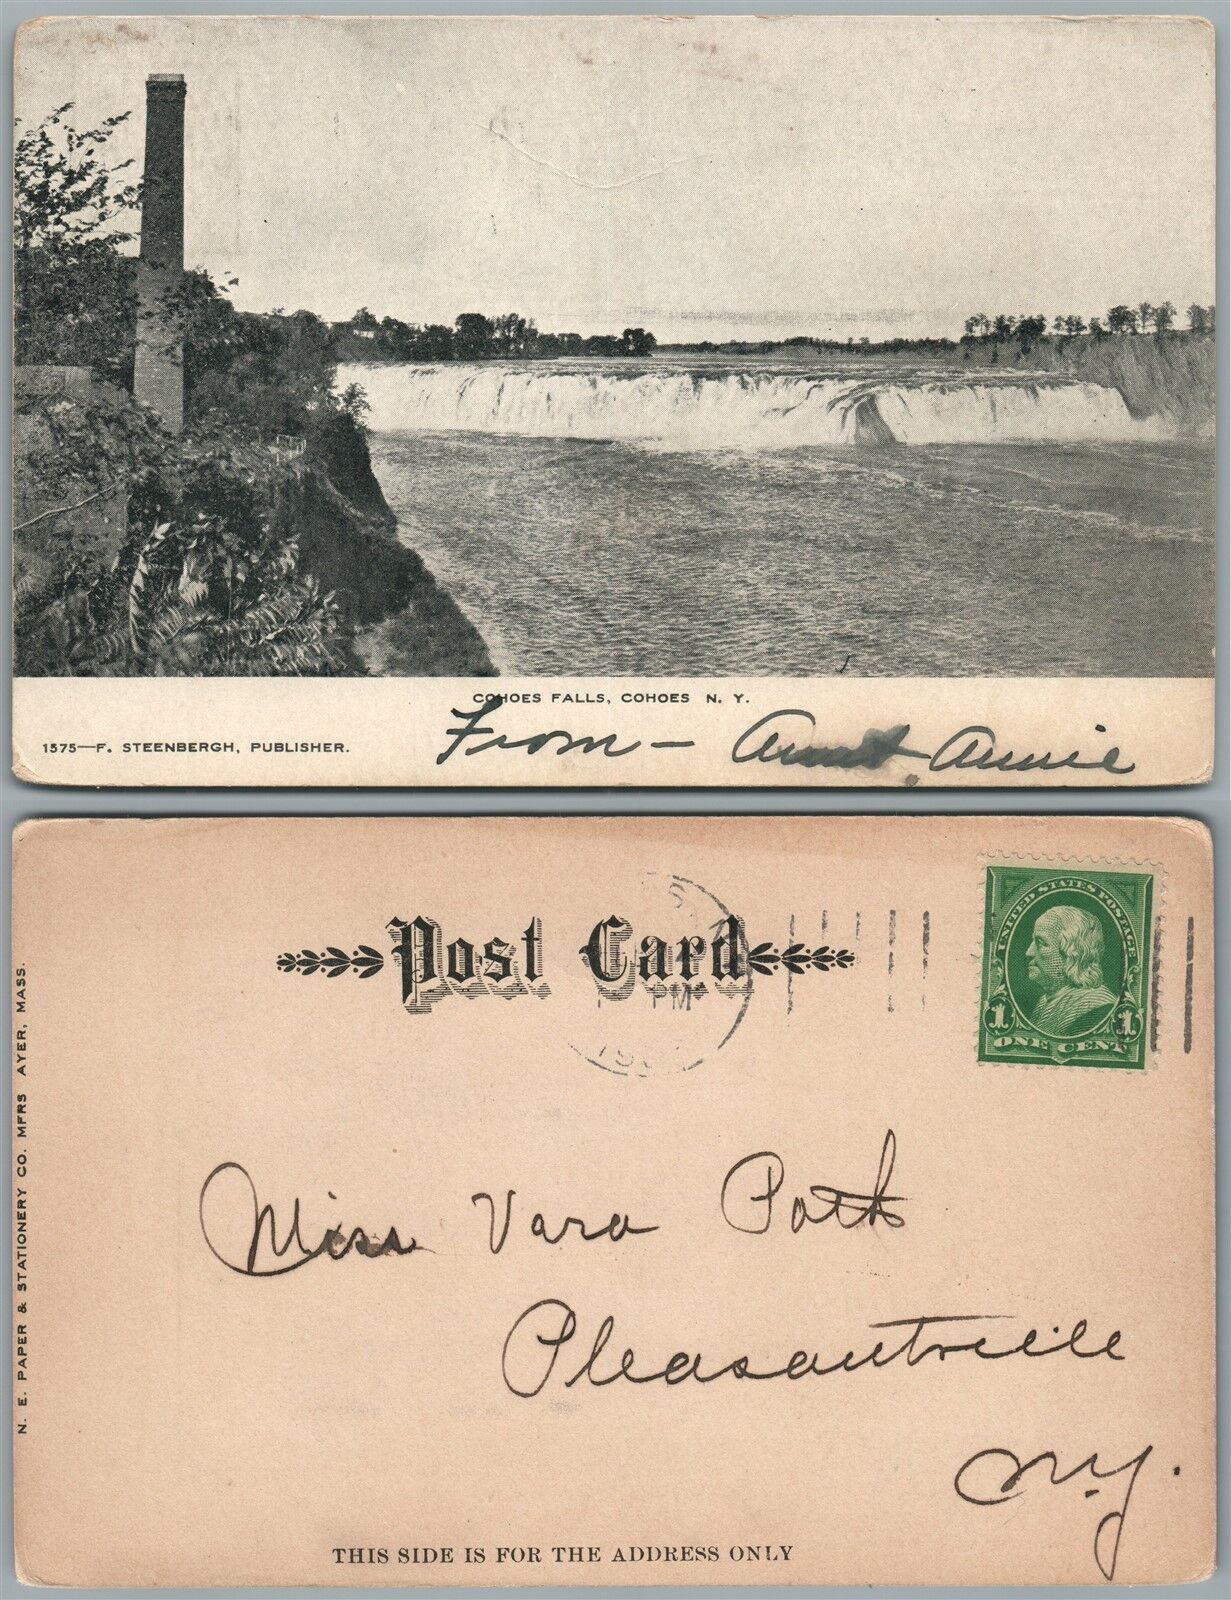 COHOES FALLS, COHOES N. Y.
1575—F. STEENBERGH, PUBLISHER.
From – Aunt Annie
Post Card
PM
UNITED STATES POSTAGE
1 1
ONE CENT
N. E. PAPER & STATIONERY CO. MFRS AYER, MASS.
Miss Vara
Pleasantville
N.Y.
THIS SIDE IS FOR THE ADDRESS ONLY